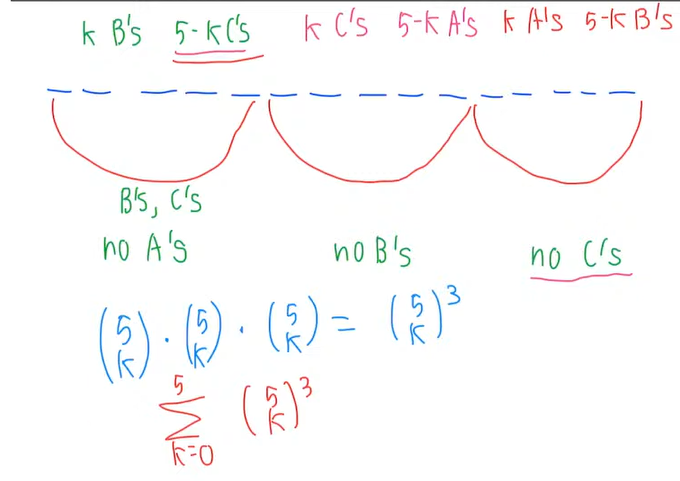 k B's 5-k C's k C's 5-k A's k A's 5-k B's
B's, C's
no A's no B's no C's
(5 k) · (5 k) · (5 k) = (5 k)^3
5
∑ (5 k)^3
k=0